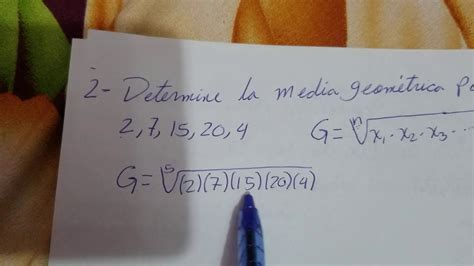 2- Determine la media geométrica Pa
2, 7, 15, 20, 4 G = ⁿ√x₁ · x₂ · x₃ ···
G = ⁵√(2)(7)(15)(20)(4)